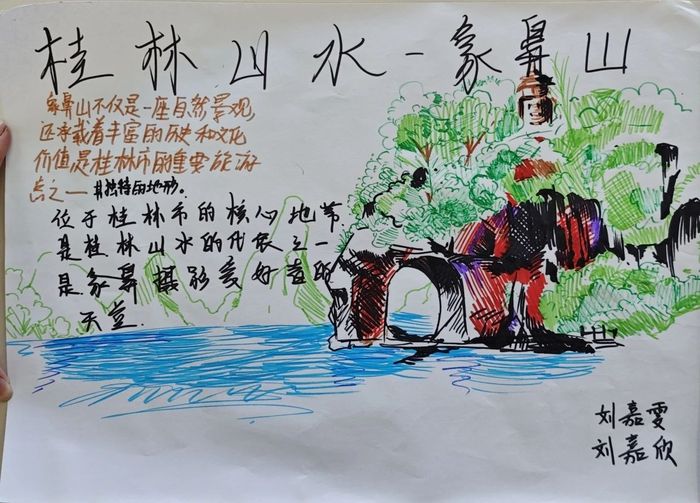 桂林山水-象鼻山
象鼻山不仅是一座自然景观,
还承载着丰富的历史和文化
价值是桂林市的重要旅游
点之一 #独特的地形。
位于桂林市的核心地带
是桂林山水的代表之一
是象鼻摄影爱好者的
天堂.
刘嘉雯
刘嘉欣